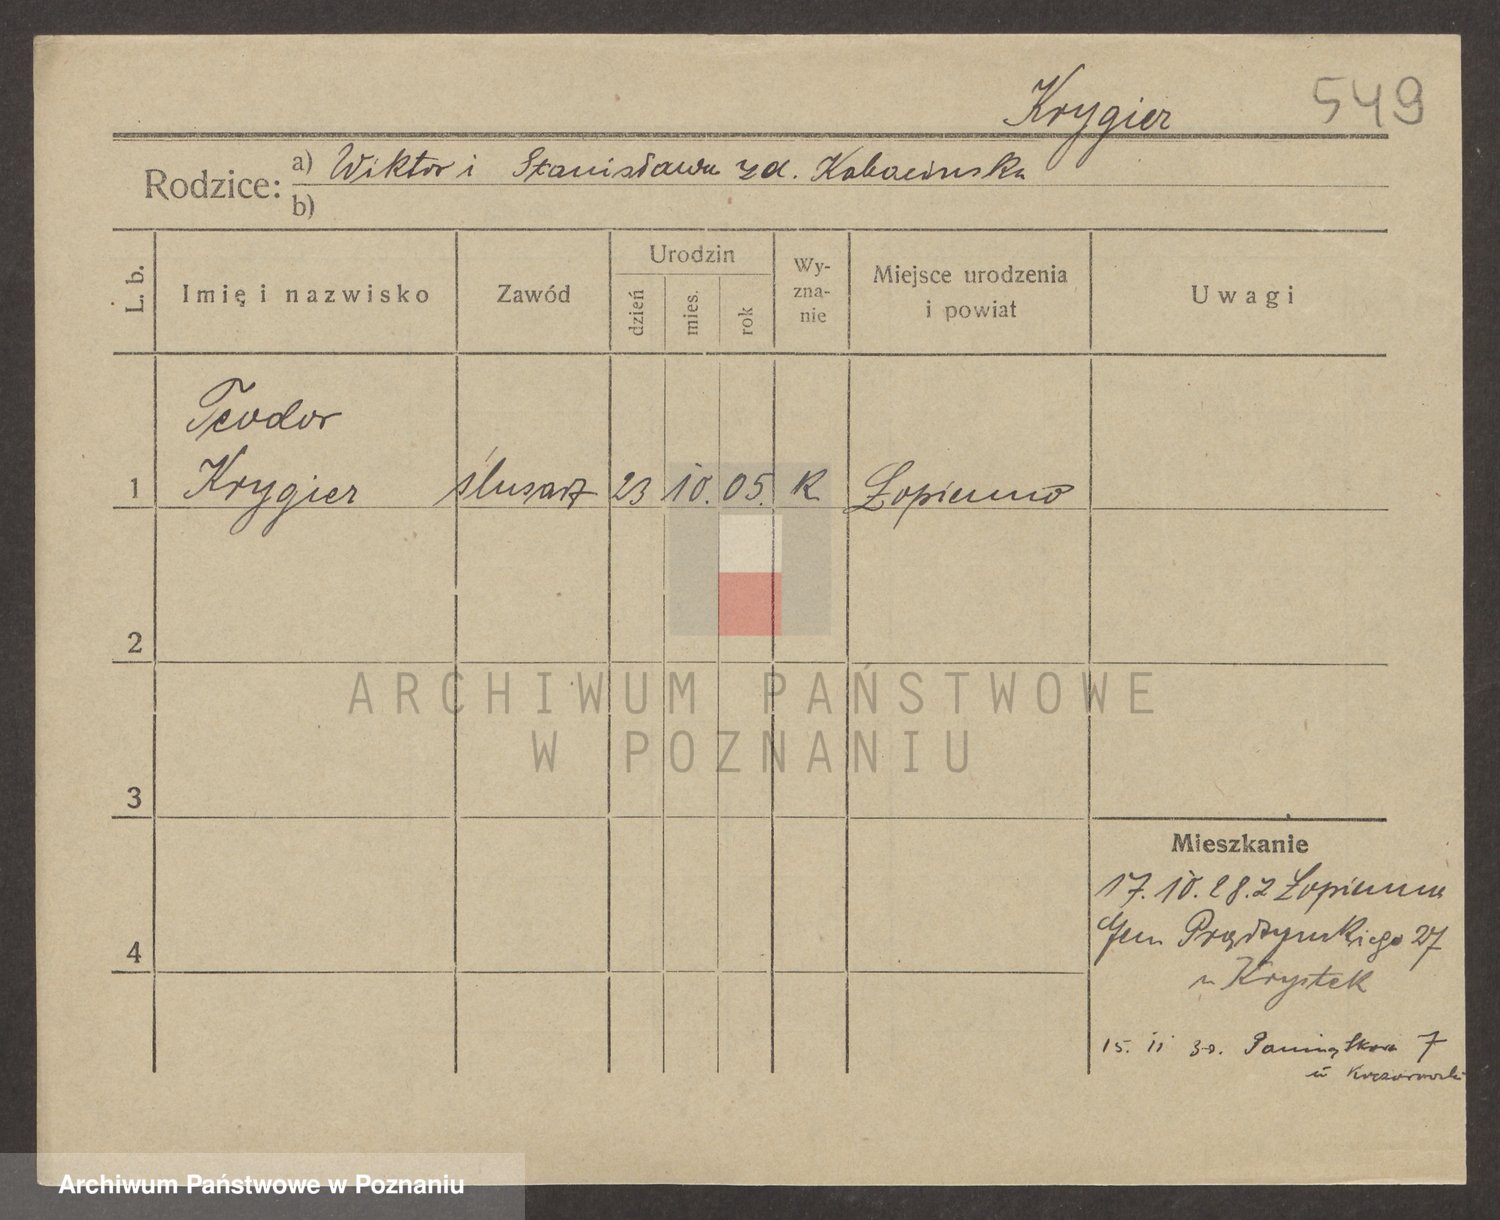 Krygier
549
Rodzice: a) Wiktor i Stanisława zd. Kabacińska
b)
L. b.
Imię i nazwisko
Zawód
Urodzin
dzień
mies.
rok
Wy-
zna-
nie
Miejsce urodzenia
i powiat
Uwagi
Teodor
1 Krygier ślusarz 23 10. 05. k Łopienno
2
ARCHIWUM PAŃSTWOWE
W POZNANIU
3
Mieszkanie
17. 10. 28. z Łopienna
Gen Prądzyńskiego 27
4
u Krystek
15. 11 30. 7
u
Archiwum Państwowe w Poznaniu